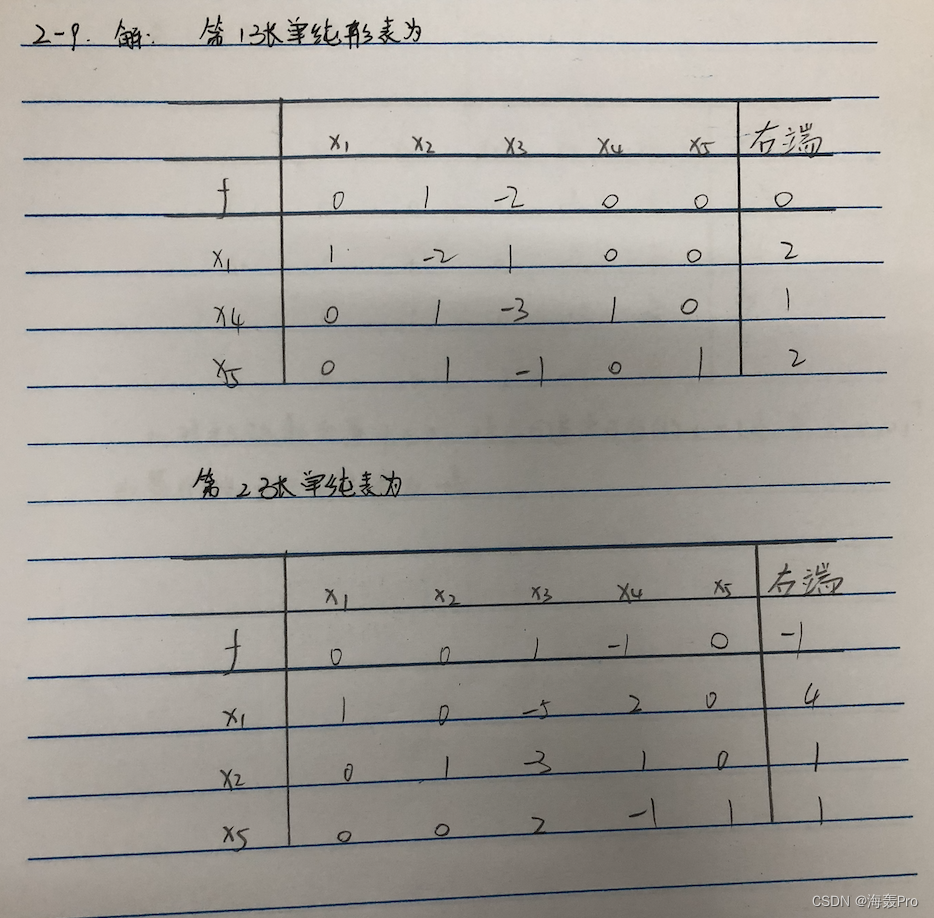 2-9. 解: 第1张单纯形表为
x₁ x₂ x₃ x₄ x₅ 右端
f 0 1 -2 0 0 0
x₁ 1 -2 1 0 0 2
x₄ 0 1 -3 1 0 1
x₅ 0 1 -1 0 1 2
第2张单纯表为
x₁ x₂ x₃ x₄ x₅ 右端
f 0 0 1 -1 0 -1
x₁ 1 0 -5 2 0 4
x₂ 0 1 -3 1 0 1
x₅ 0 0 2 -1 1 1
CSDN @海轰Pro